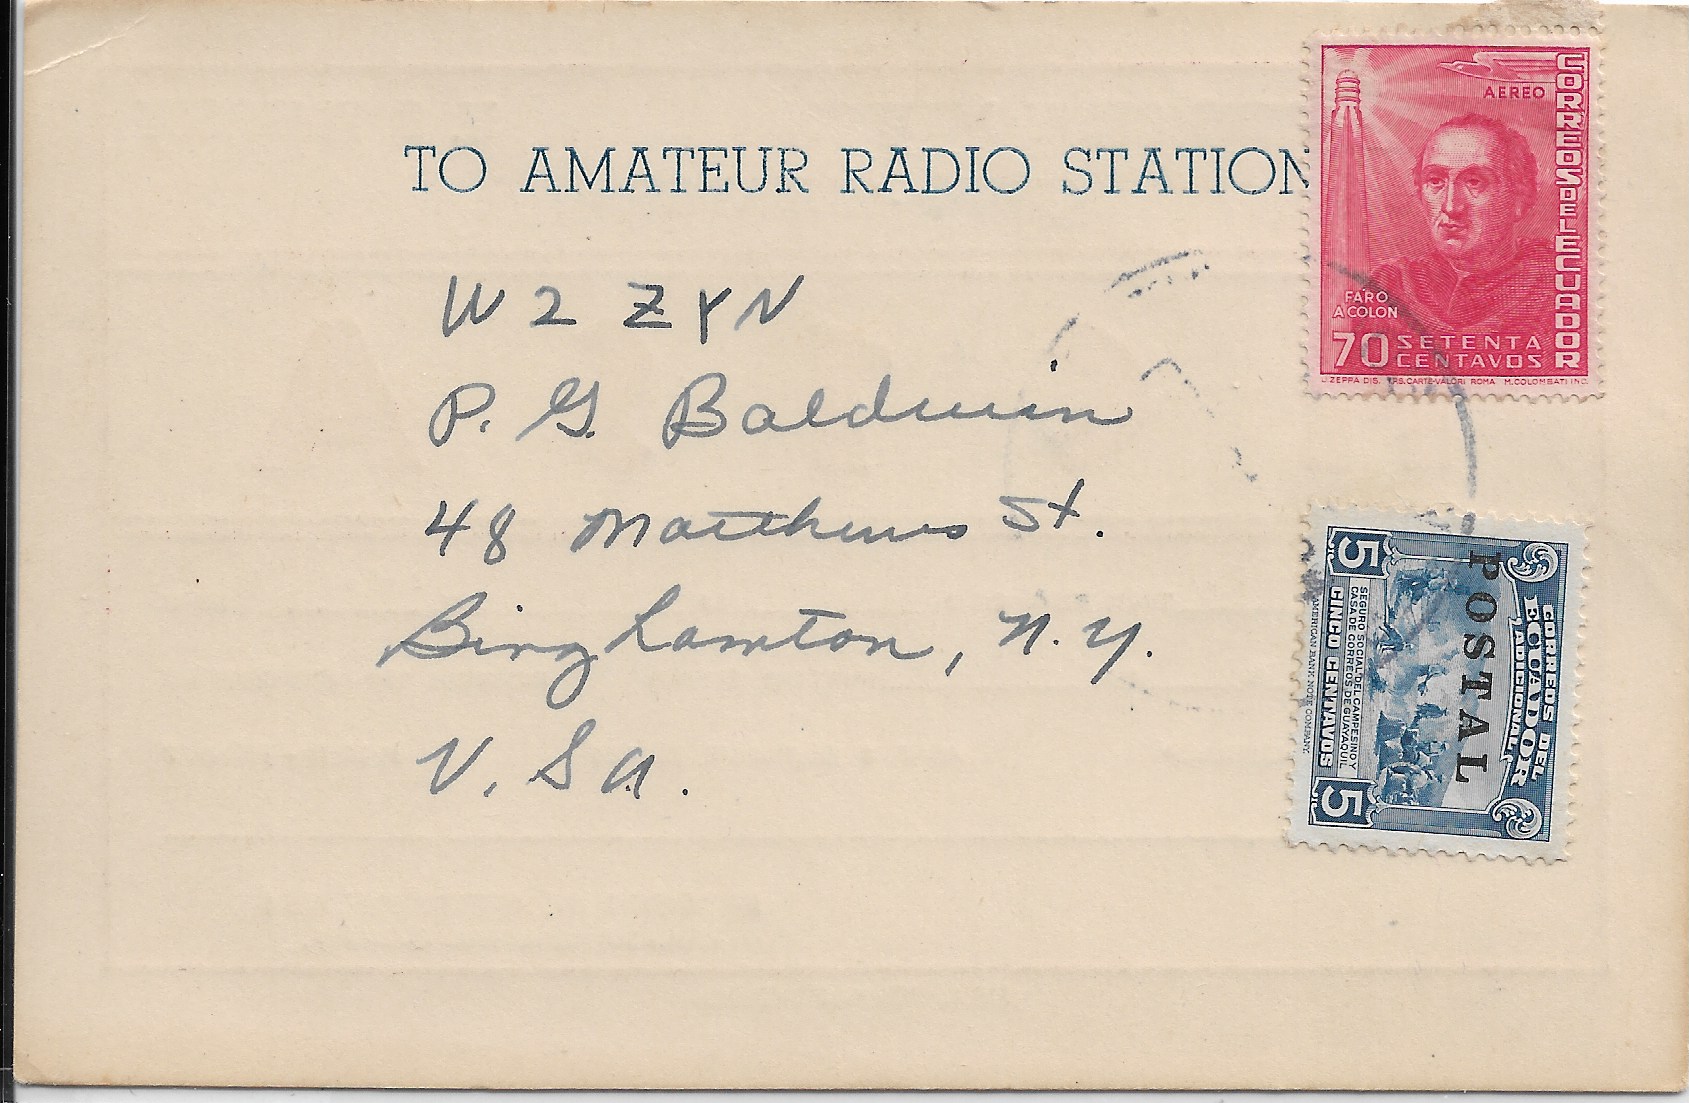 TO AMATEUR RADIO STATION
W2ZYN
P. G. Baldwin
48 Matthews St.
Binghamton, N.Y.
U. S a.
AEREO
CORREOS DEL ECUADOR
FARO
A COLON
70 SETENTA
CENTAVOS
L.ZEPPA DIS. I.P.S.CARTE-VALORI ROMA M.COLOMBATI INC.
CORREOS DEL
ECUADOR
ADICIONAL
POSTAL
SEGURO SOCIAL DEL CAMPESINO Y
CASA DE CORREOS DE GUAYAQUIL
5 CINCO CENTAVOS 5
AMERICAN BANK NOTE COMPANY.